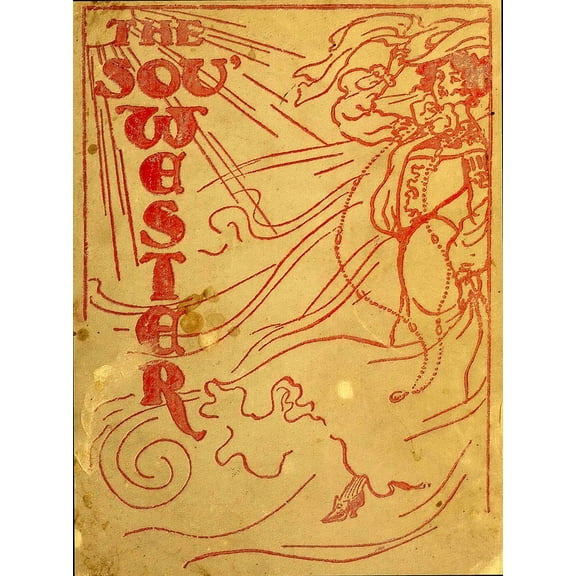 THE
SOU'
WESTER